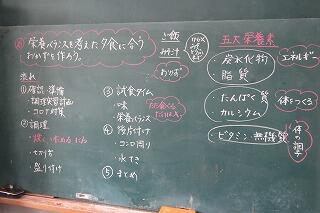 栄養バランスを考えた夕食に合う
おかずを作ろう。
流れ
① 確認・準備
・調理実習計画
・コロナ対策
② 調理
・切り方
・盛り付け
③ 試食タイム
・味
・栄養バランス
④ 後片付け
・コンロ周り
・水てき
⑤ まとめ
ご飯
みそ汁
おかず
五大栄養素
・炭水化物
脂質
エネルギー
・たんぱく質
カルシウム
体をつくる
・ビタミン・無機質
体の調子